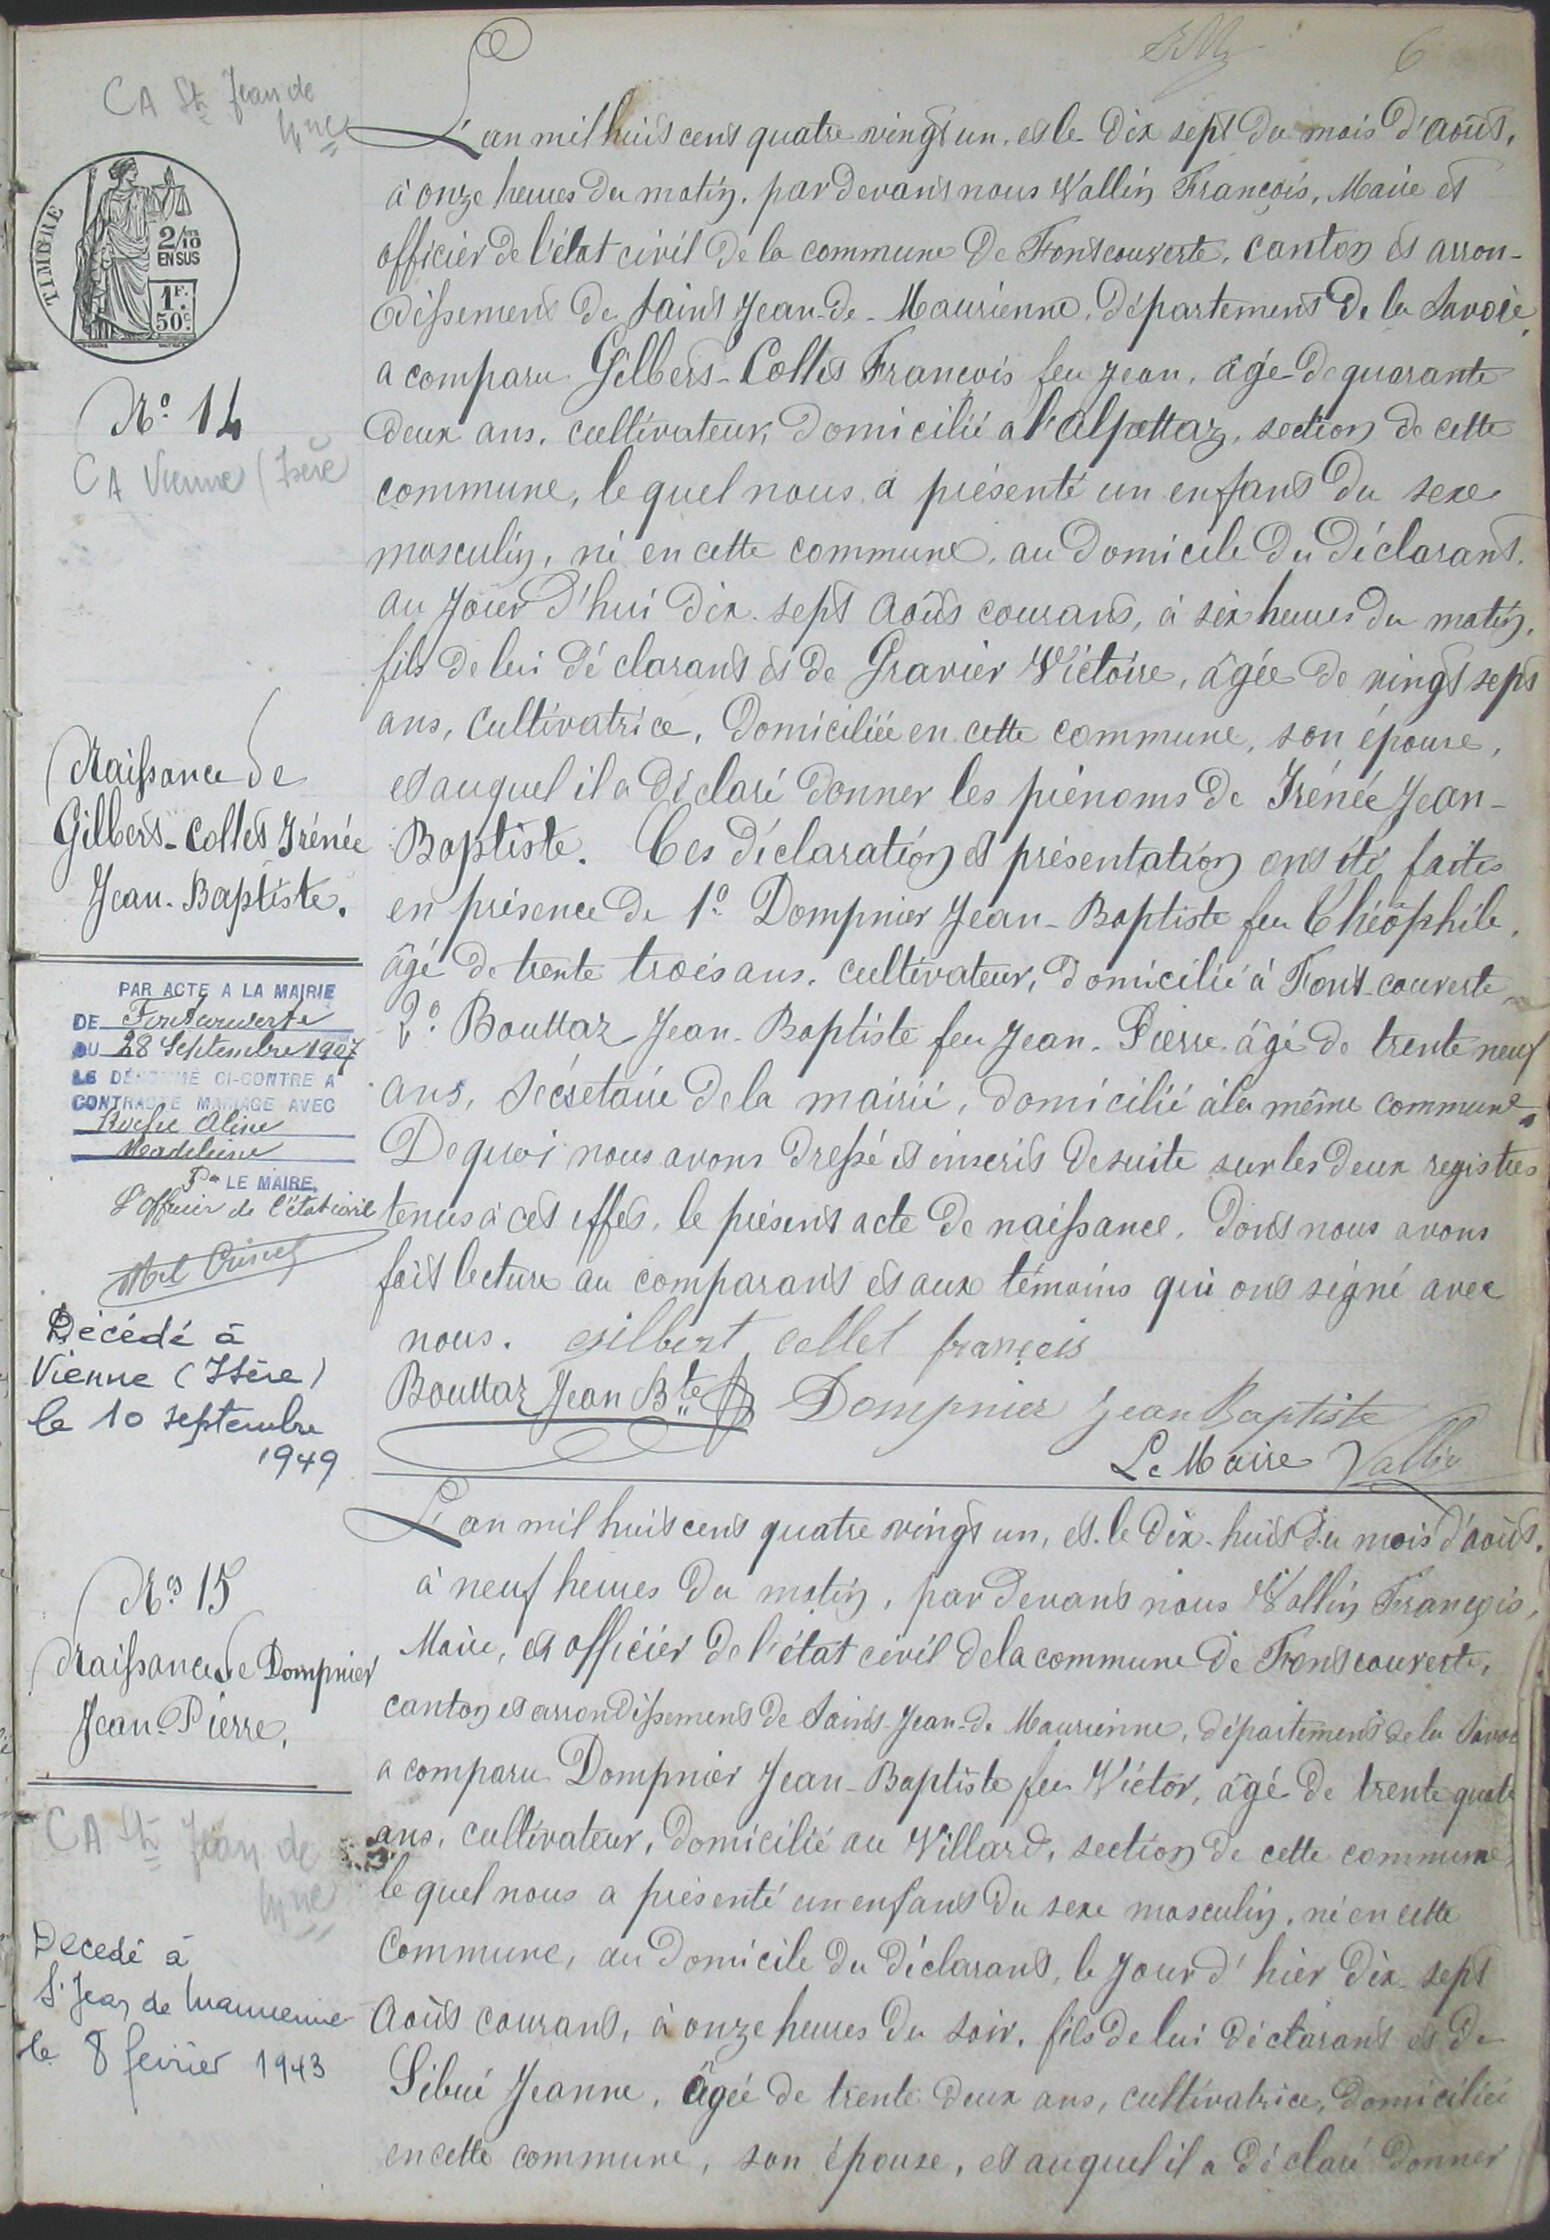 6
CA St Jean de
Mne
TIMBRE
2/10
EN SUS
1F.
50c
L'an mil huit cent quatre vingt un, et le dix sept du mois d'août,
à onze heures du matin, par devant nous Vallin François, Maire et
officier de l'état civil de la commune de Fontcouverte, canton et arron-
dissement de Saint Jean-de-Maurienne, département de la Savoie,
a comparu Gilbert-Collet François feu Jean, âgé de quarante
deux ans, cultivateur, domicilié à l'alpettaz, section de cette
commune, le quel nous a présenté un enfant du sexe
masculin, né en cette commune, au domicile du déclarant,
au jour d'hui dix sept août courant, à six heures du matin,
fils de lui déclarant et de Gravier Victoire, âgée de vingt sept
ans, cultivatrice, domiciliée en cette commune, son épouse,
et auquel il a déclaré donner les prénoms de Irénée Jean-
Baptiste. Ces déclaration et présentation ont été faites
en présence de 1º Dompnier Jean-Baptiste feu Théophile,
âgé de trente trois ans, cultivateur, domicilié à Font-couverte
2º Bouttaz Jean-Baptiste feu Jean-Pierre âgé de trente neuf
ans, secrétaire de la mairie, domicilié à la même commune.
De quoi nous avons dressé et inscrit de suite sur les deux registres
tenus à cet effet, le présent acte de naissance, dont nous avons
fait lecture au comparant et aux témoins qui ont signé avec
nous. gilbert collet françois
Bouttaz Jean Bte Dompnier Jean Baptiste
Le Maire Vallin
Nº 14
CA Vienne (Isère
Naissance de
Gilbert-Collet Irénée
Jean-Baptiste.
PAR ACTE A LA MAIRIE
DE Fontcouverte
DU 28 Septembre 1907
LE DÉNOMMÉ CI-CONTRE A
CONTRACTÉ MARIAGE AVEC
Aline
Madeleine
Pr LE MAIRE,
L'officier de l'état civil
Décédé à
Vienne (Isère)
le 10 septembre
1949
L'an mil huit cent quatre vingt un, et le dix-huit du mois d'août,
à neuf heures du matin, par devant nous Vallin François,
Maire, et officier de l'état civil de la commune de Fontcouverte,
canton et arrondissement de Saint-Jean-de Maurienne, département de la Savoie
a comparu Dompnier Jean-Baptiste feu Victor, âgé de trente quatre
ans, cultivateur, domicilié au Villard, section de cette commune,
le quel nous a présenté un enfant du sexe masculin, né en cette
commune, au domicile du déclarant, le jour d'hier dix-sept
août courant, à onze heures du soir, fils de lui déclarant et de
Sibué Jeanne, âgée de trente deux ans, cultivatrice, domiciliée
en cette commune, son épouse, et auquel il a déclaré donner
Nº 15
Naissance de Dompnier
Jean-Pierre.
CA St Jean de
Mne
Decedé à
St Jean de Maurienne
le 8 fevrier 1943